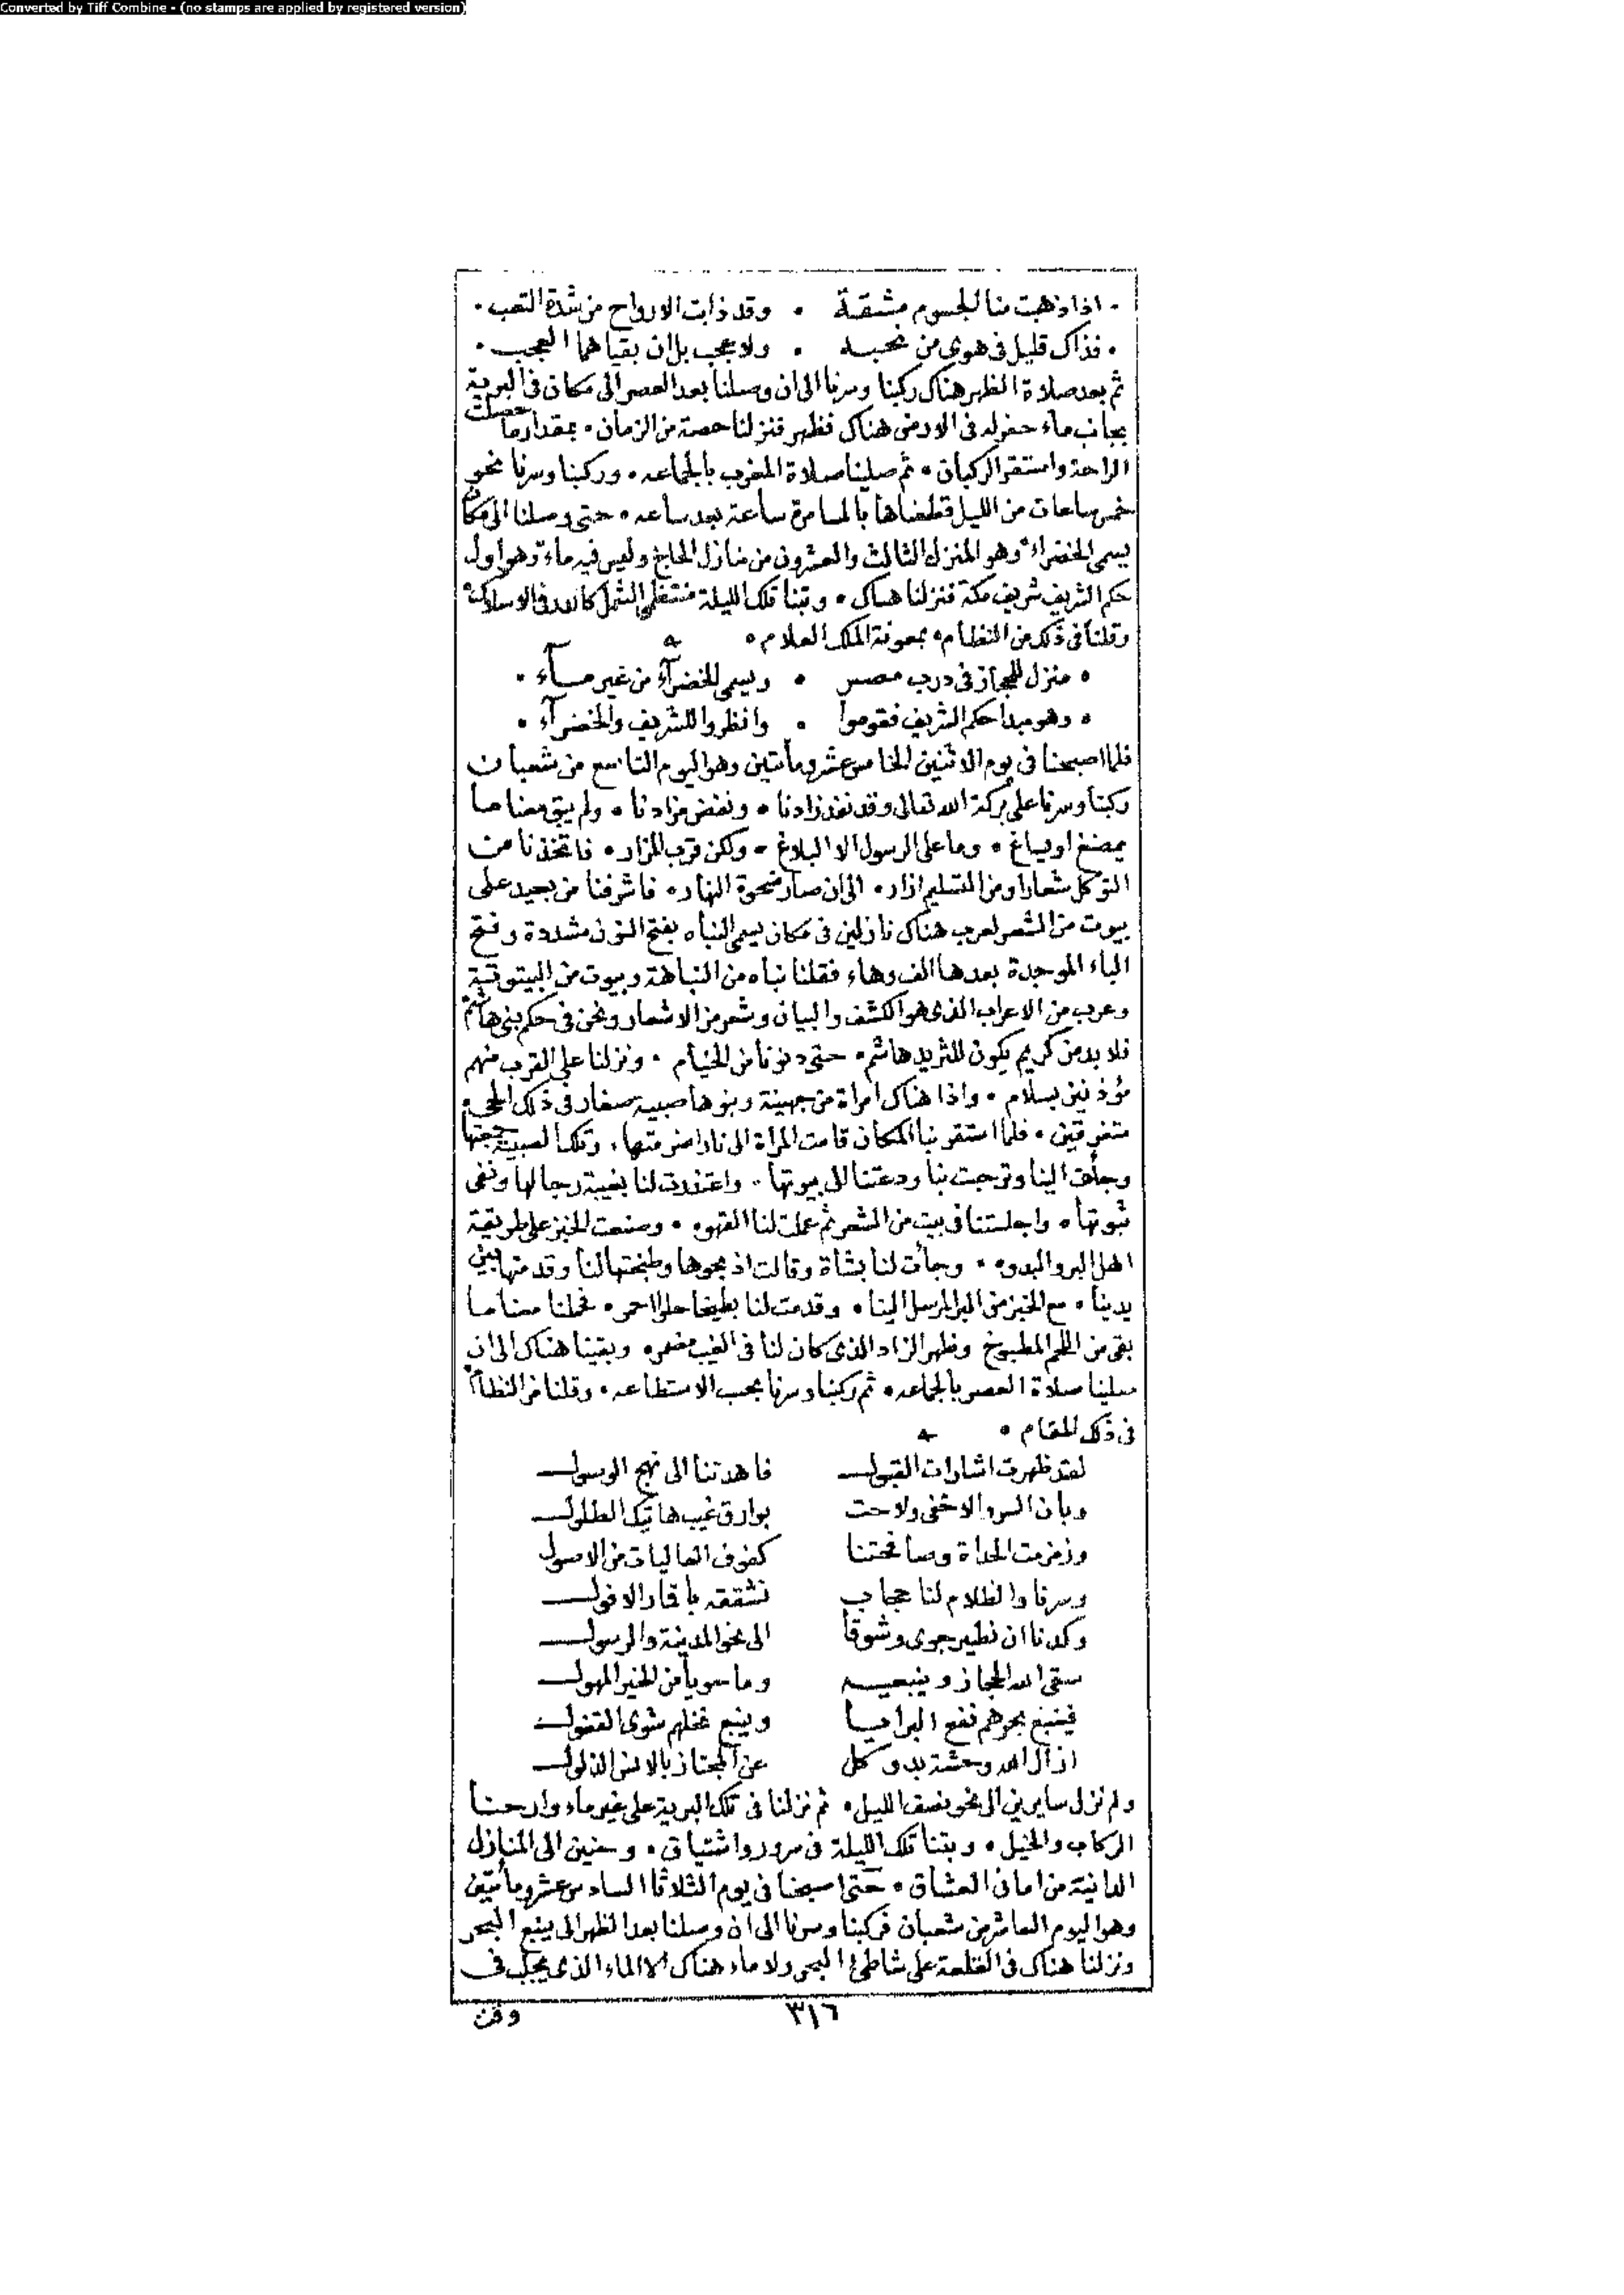 Converted by Tiff Combine - (no stamps are applied by registered version)
۰ اذا ذهبت منا الجسوم مشقة ۰ وقد ذابت الارواح من شدة التعب ۰
۰ فذاك قليل فى هوى من نحبه ۰ ولا عجب بل ان بقيا هما العجب ۰
ثم بعد صلاة الظهر هناك ركبنا وسرنا الى ان وصلنا بعد العصر الى مكان فى البرية
بجانب ماء حفر له فى الارض هناك فظهر فنزلنا حصة من الزمان ۰ بمقدار ما حصلت
الراحة واستقر الركبان ۰ ثم صلينا صلاة المغرب بالجماعه ۰ وركبنا وسرنا نحو
خمس ساعات من الليل قطعناها بالمسامرة ساعة بعد ساعه ۰ حتى وصلنا الى مكان
يسمى الخضراء وهو المنزل الثالث والعشرون من منازل الحاج وليس فيه ماء وهو اول
حكم الشريف شريف مكة فنزلنا هناك ۰ وبتنا تلك الليلة منتظمى الشمل كالدر فى الاسلاك
وقلنا فى ذلك من النظام ۰ بمعونة الملك العلام ۰
۰ منزل للحجاز فى درب مصر ۰ ويسمى الخضرآء من غير مآء ۰
۰ وهو مبدا حكم الشريف فقوموا ۰ وانظروا للشريف والخضرآء ۰
فلما اصبحنا فى يوم الاثنين الخامس عشر ومأتين وهو اليوم التاسع من شعبان
ركبنا وسرنا على بركة الله تعالى وقد نفد زادنا ۰ ونفض مزادنا ۰ ولم يبق معنا ما
يمضغ او يساغ ۰ وما على الرسول الا البلاغ ۰ ولكن قرب المزار ۰ فاتخذنا من
التوكل شعارا ومن التسليم ازار ۰ الى ان صار ضحوة النهار ۰ فاشرفنا من بعيد على
بيوت من الشعر لعرب هناك نازلين فى مكان يسمى النباه بفتح النون مشددة وفتح
الباء الموحدة بعدها الف وهاء فقلنا نباه من النباهة وبيوت من البيتوتية
وعرب من الاعراب الذى هو الكشف والبيان وشعر من الاشعار ونحن فى حكم بنى هاشم
فلا بد من كريم يكون للثريد هاشم ۰ حتى دنونا من الخيام ۰ ونزلنا على القرب منهم
مؤذنين بسلام ۰ واذا هناك امراة من جهينة وبنوها صبية صغار فى ذلك الحى
متفرقين ۰ فلما استقر بنا المكان قامت المرأة الى نار اضرمتها ۰ وتلك الصبية جمعتها
وجأت الينا وترحبت بنا ودعتنا الى بيوتها ۰ واعتذرت لنا بغيبة رجالها ونفى
ثبوتها ۰ واجلستنا فى بيت من الشعر ثم عملت لنا القهوه ۰ وصنعت الخبز على طريقة
اهل البر والبدوه ۰ وجأت لنا بشاة وقالت اذبحوها وطبختها لنا وقدمتها بين
يدينا ۰ مع الخبز من البر المرسل الينا ۰ وقدمت لنا بطيخا حلوا احمر ۰ فحملنا معنا ما
بقى من اللحم المطبوخ وظهر الزاد الذى كان لنا فى الغيب مضمر ۰ وبقينا هناك الى ان
صلينا صلاة العصر بالجماعه ۰ ثم ركبنا وسرنا بحسب الاستطاعه ۰ وقلنا من النظام
فى ذلك المقام ۰
لقد ظهرت اشارات القبول فاهدتنا الى نهج الوصول
وبان السر والاخفى ولاحت بوارق غيب هاتيك الطلول
وزمزمت الحداة وصافحتنا كفوف العاليات من الاصول
وسرنا والظلام لنا حجاب نشققه باقمار الافول
وكدنا ان نطير جوى وشوقا الى نحو المدينة والرسول
سقى الله الحجاز وينبعيه وما حويا من الخير المهول
فينبع بحرهم نفع البرايا وينبع نخلهم مثوى القفول
ازال الله وحشة بدو كل عن المجتاز بالانس الذلول
ولم نزل سايرين الى نحو نصف الليل ۰ ثم نزلنا فى تلك البرية على غير ماء وارحنا
الركاب والخيل ۰ وبتنا تلك الليلة فى سرور واشتياق ۰ وحنين الى المنازل
الدانية من امان العشاق ۰ حتى اصبحنا فى يوم الثلاثا السادس عشر ومأتين
وهو اليوم العاشر من شعبان فركبنا وسرنا الى ان وصلنا بعد الظهر الى ينبع البحر
ونزلنا هناك فى القلعة على شاطئ البحر ولا ماء هناك الا الماء الذى يجلب فى
٣١٦